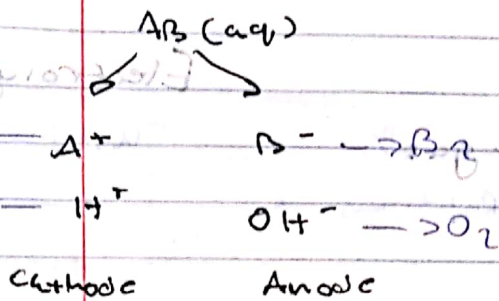 AB (aq)
A⁺ B⁻ → B₂
H⁺ OH⁻ → O₂
Cathode Anode